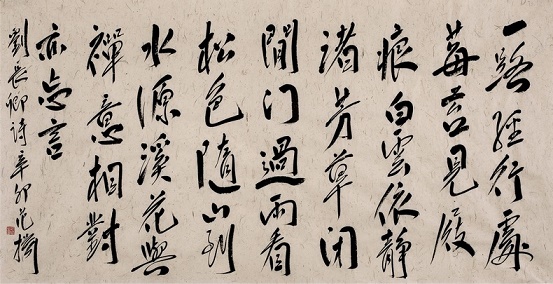 一路經行處
莓苔見屐
痕白雲依靜
渚芳草閉
閒门過雨看
松色隨山到
水源溪花與
禪意相對
亦忘言
劉長卿詩辛卯范